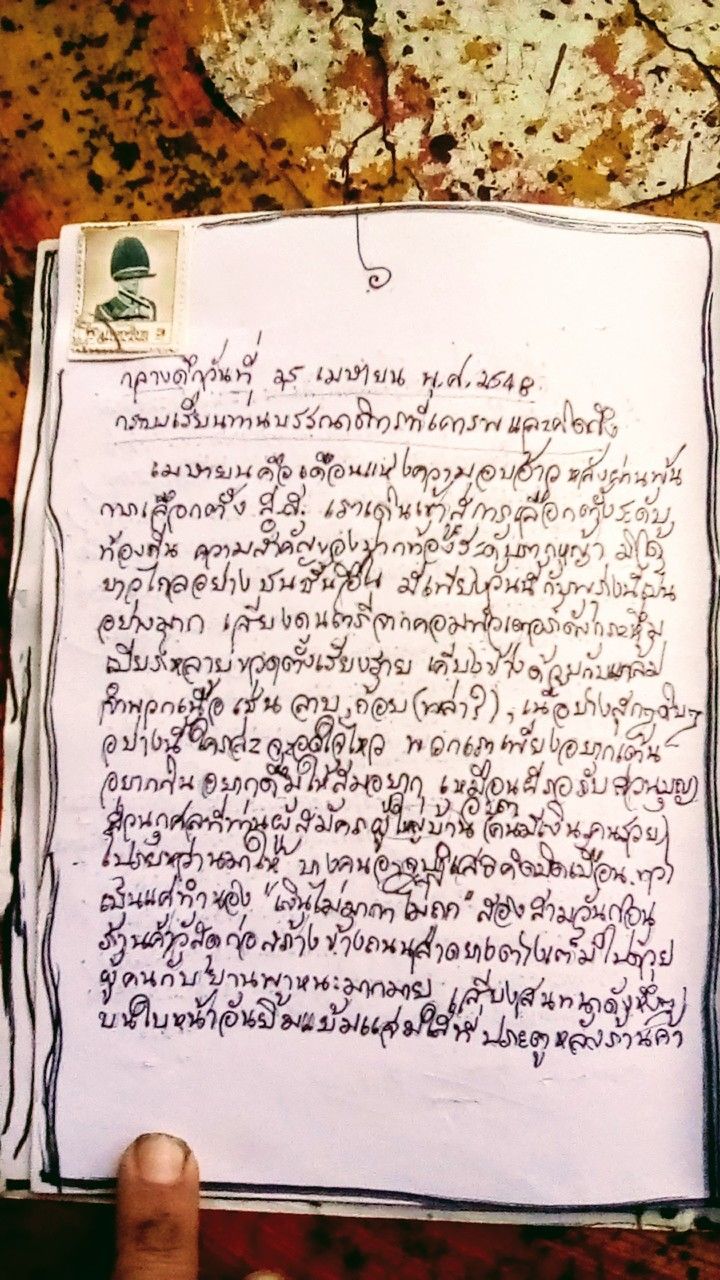 กลางดึกวันที่ 25 เมษายน พ.ศ. 2548
กราบเรียนท่านบรรณาธิการที่เคารพและคิดถึง
เมษายนคือเดือนแห่งความอบอ้าว หลังผ่านพ้น
การเลือกตั้ง ส.ส. เราเดินเข้าสู่การเลือกตั้งระดับ
ท้องถิ่น ความสำคัญของปากท้องระดับรากหญ้า มิได้
ยาวไกลอย่างชนชั้นอื่น มีเพียงวันนี้กับพรุ่งนี้เป็น
อย่างมาก เสียงดนตรีจากคอมพิวเตอร์ดังกระหึ่ม
เบียร์หลายขวดตั้งเรียงราย เคียงข้างด้วยกับแกล้ม
จำพวกเนื้อ เช่น ลาบ, ก้อย (หล่า?), เนื้อย่างสุกๆดิบๆ
อย่างนี้ใครล่ะจะอดใจไหว พวกเราเพียงอยากเต้น
อยากกิน อยากดื่มให้สมอยาก เหมือนผีรอรับส่วนบุญ
ส่วนกุศลที่ท่านผู้สมัครผู้ใหญ่บ้าน (คนมีเงิน, คนรวย)
โปรยหว่านมาให้ บางคนอาจปฏิเสธคิดบิดเบือน ทว่า
เป็นแค่ทำนอง "เงินไม่มากาไม่ถูก" สองสามวันก่อน
ร้านค้าวัสดุก่อสร้างข้างถนนลาดยางต่างเต็มไปด้วย
ผู้คนกับยานพาหนะมากมาย เสียงสนทนาดังหึ่งๆ
บนใบหน้าอันยิ้มแย้มแจ่มใสที่ประตูหลังร้านค้า